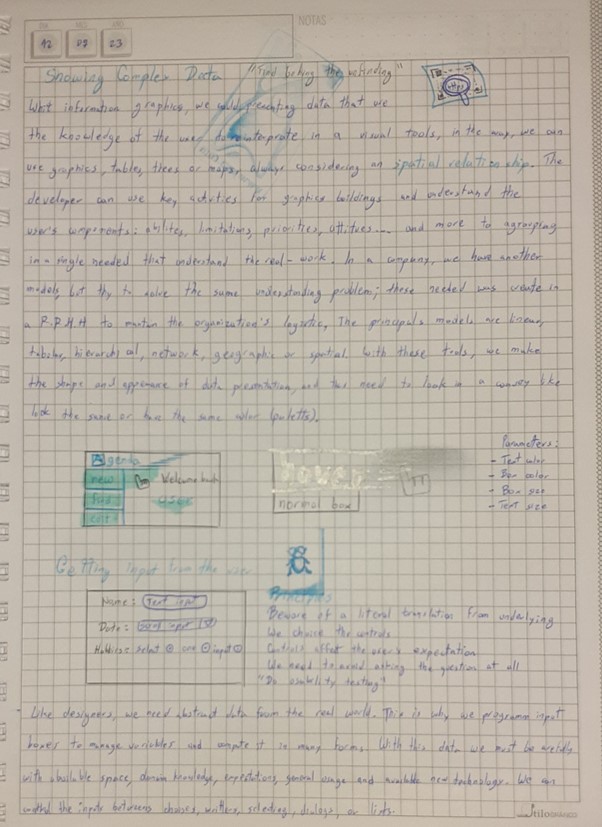 NOTAS
12 09 23
Showing Complex Data "Find behing the
information graphics, we presenting data that we
the knowledge of the user in a visual tools, in the map, we can
use graphics, tables, trees or maps, always considering an spatial relation ship. The
developer can use key activities for graphics buildings and understand the
user's components: abilites, limitations, priorities, and more to
in a single needed that understand the real-work. In a company, we have another
models, but thy to solve the same understanding problem; these needed was create in
a to the organization's logistic, The principals models are linear,
tabular, hierarchical, network, geographic or spatial. With these tools, we make
the shape and of data presentation, and this need to look in a convey like
look the same or have the same color (palette).
Agenda
new
Welcome back
USER
edit
hover
normal box
Parameters:
- Text color
- color
- Box size
- Text size
Getting input from the user
Name: Text input
Date: input
Hobbies: select one input
Principles
Beware of a literal translation from underlying
We choise the controls
Controls affect the user's expectation
We need to avoid asking the question at all
"Do usability testing"
Like designers, we need abstract data from the real world. This is why we programm input
boxes to manage variables and compute it in many forms. With this data we must be
with available space, domain knowledge, expectations, general usage and available new technology. We can
control the inputs betweens choises, writters, selecting, dialogs, or lists.